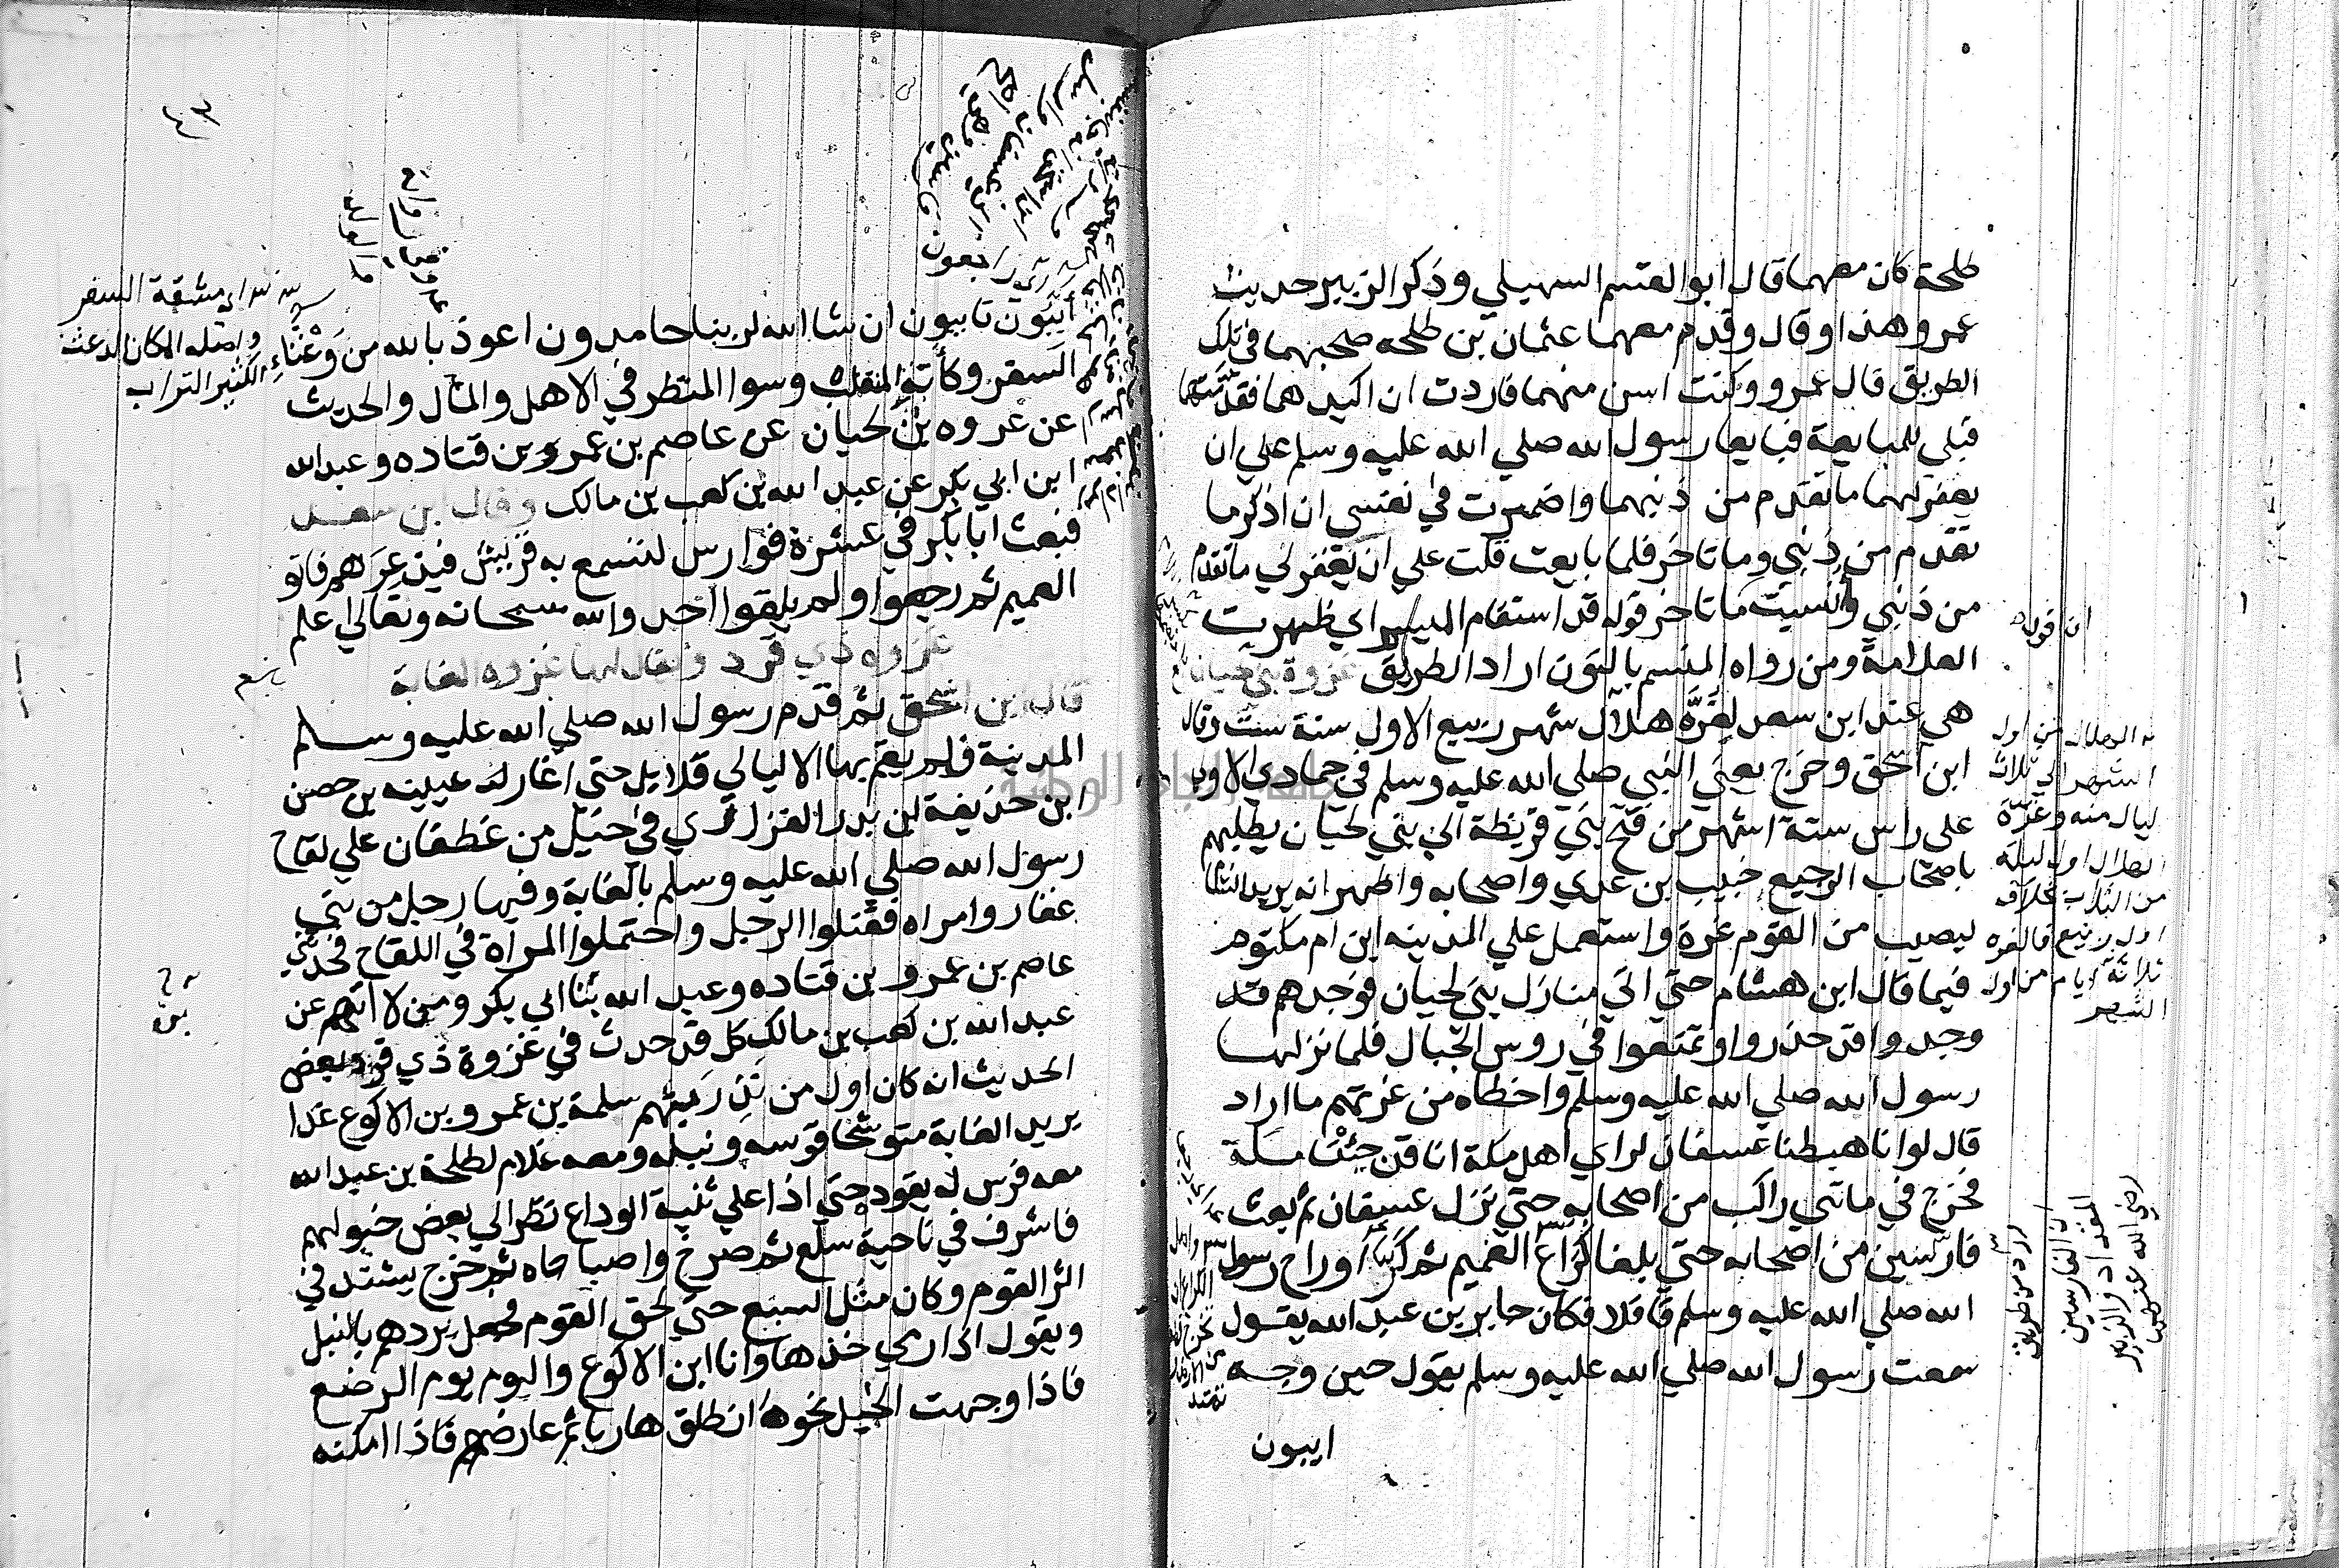 طلحة كان معهما قال ابو القسم السهيلي وذكر الزبير حديث
عمرو هذا وقال وقدم معهما عثمان بن طلحه صحبهما في تلك
الطريق قال عمرو وكنت اسن منهما فاردت ان اكيدهما فقدمتهما
قبلي للمبايعة فبايعا رسول الله صلي الله عليه وسلم علي ان
يغفر لهما ما تقدم من ذنبهما واضمرت في نفسي ان اذكر ما
تقدم من ذنبي وما تاخر فلما بايعت قلت علي ان يغفر لي ما تقدم
من ذنبي وانسيت ما تاخر قوله قد استقام الميسم اي ظهرت
العلامة ومن رواه المنسم بالنون اراد الطريق غزوة بني لحيان
هي عند ابن سعد لغرة هلال شهر ربيع الاول سنة ست وقال
ابن اسحق وخرج يعني النبي صلي الله عليه وسلم في جمادي الاولي
علي راس ستة اشهر من فتح بني قريظة الي بني لحيان يطلبهم
باصحاب الرجيع خبيب بن عدي واصحابه واظهر انه يريد الشام
ليصيب من القوم غرة واستعمل علي المدينه ابن ام مكتوم
فيما قال ابن هشام حتي اتي منازل بني لحيان فوجدهم قد
وجدوا قد حذروا وتمتعوا في روس الجبال فلما نزلها
رسول الله صلي الله عليه وسلم واخطاه من غرتهم ما اراد
قال لو انا هبطنا عسفان لراي اهل مكة انا قد جئنا مكة
فخرج في مائتي راكب من اصحابه حتي نزل عسفان ثم بعث
فارسين من اصحابه حتي بلغا كراع الغميم ثم كرا وراح رسول
الله صلي الله عليه وسلم قافلا فكان جابر بن عبد الله يقول
سمعت رسول الله صلي الله عليه وسلم يقول حين وجه
ايبون
الهلال من اول
الشهر الي ثلاث
ليال منه وغرة
الهلال اول ليلة
من الثلاث بخلاف
ربيع فالغره
ثلاثة ايام من اول
الشهر
ان الفارسين
المقداد والزبير
رضي الله عنهما
آئبون تايبون ان شا الله لربنا حامدون اعوذ بالله من وعثاء
السفر وكابة المنقلب وسوا المنظر في الاهل والمال والحديث
عن غزوه بني لحيان عن عاصم بن عمرو بن قتاده وعبد الله
ابن ابي بكر عن عبد الله بن كعب بن مالك وقال ابن سعد
فبعث ابا بكر في عشرة فوارس لتسمع به قريش فيذعرهم فاتو
الغميم ثم رجعوا ولم يلقوا احد والله سبحانه وتعالي اعلم
غزوه ذي قرد ويقال لها غزوه الغابة
قال ابن اسحق ثم قدم رسول الله صلي الله عليه وسلم
المدينة فلم يقم بها الا ليالي قلايل حتي اغار عيينه بن حصن
ابن حذيفة ابن بدر الفزاري في خيل من غطفان علي لقاح
رسول الله صلي الله عليه وسلم بالغابة وفيها رجل من بني
غفار وامراه فقتلوا الرجل واحتملوا المراة في اللقاح فحدثني
عاصم بن عمرو بن قتاده وعبد الله بن ابي بكر ومن لا اتهم عن
عبد الله بن كعب بن مالك كل قد حدث في غزوة ذي قرد بعض
الحديث انه كان اول من نذر بهم سلمة بن عمرو بن الاكوع غدا
يريد الغابة متوشحا قوسه ونبله ومعه غلام لطلحة بن عبيد الله
معه فرس له يقوده حتي اذا علي ثنية الوداع نظر الي بعض خيولهم
فاشرف في ناحية سلع ثم صرخ واصباحاه ثم خرج يشتد في
اثر القوم وكان مثل السبع حتي لحق القوم فجعل يردهم بالنبل
ويقول اذا رمي خذها وانا ابن الاكوع واليوم يوم الرضع
فاذا وجهت الخيل نحوه انطلق هاربا ثم عارضهم فاذا امكنه
اي مشقة السفر
واصله المكان الدعث
الكثير التراب